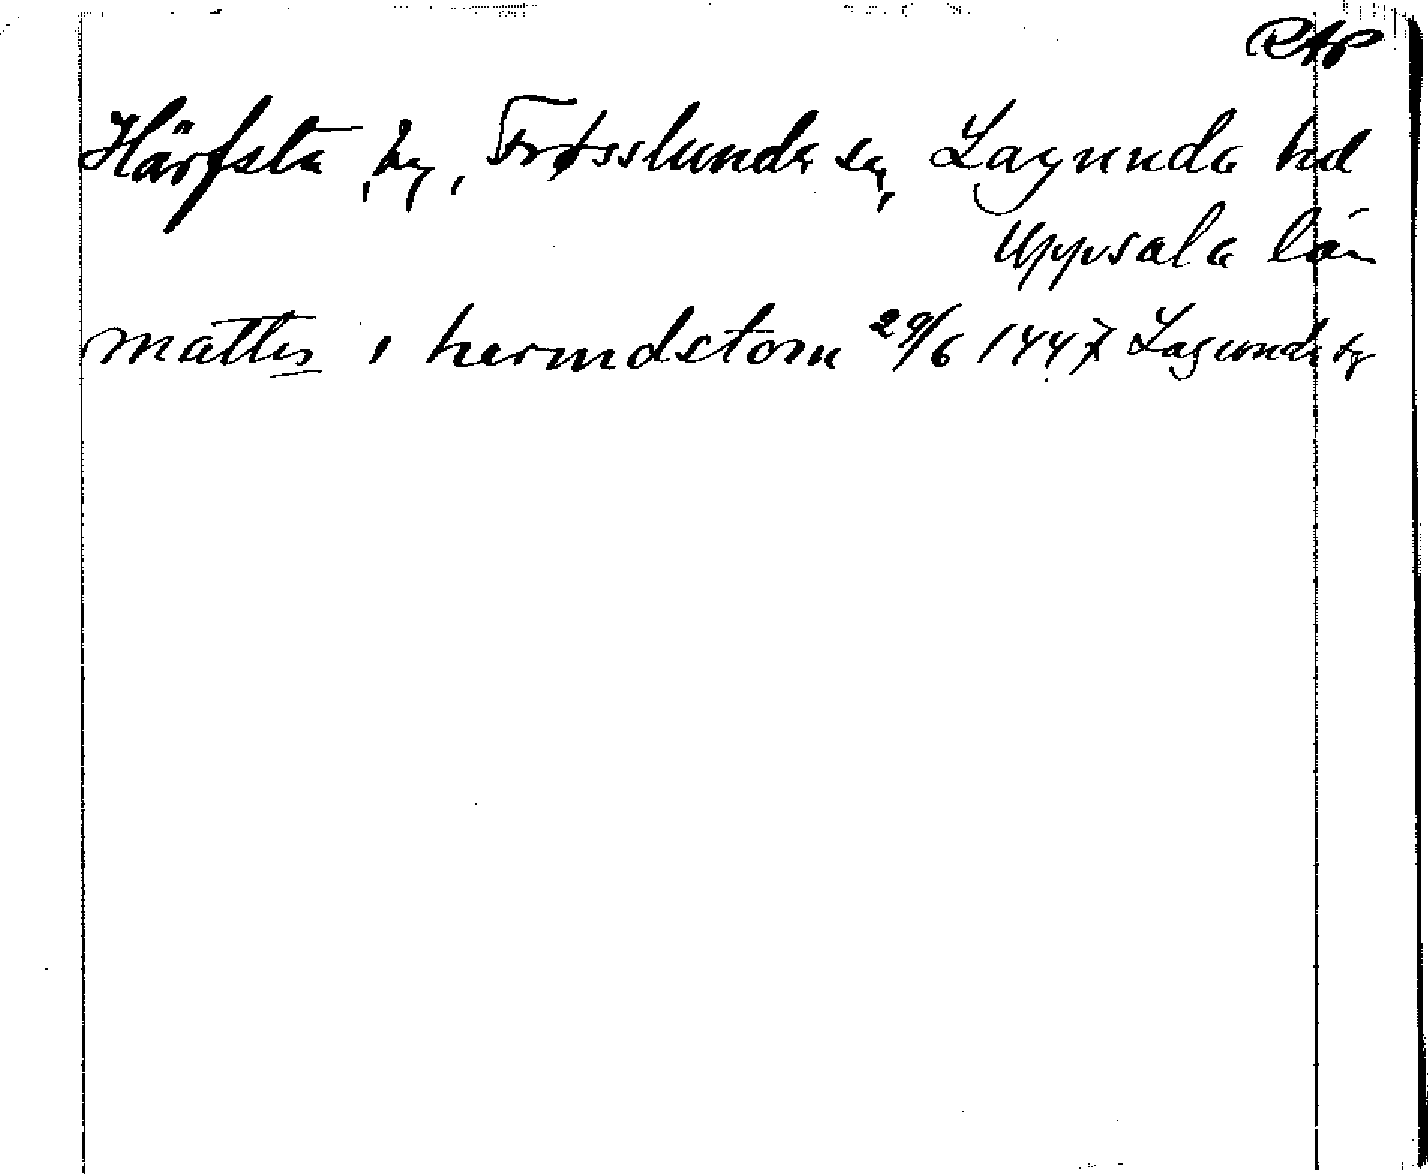 RAP
Härfsta, by, Frösslunda sn, Lagunda hd
Uppsala län
mattis i hermdstom 29/6 1447 Lagunda